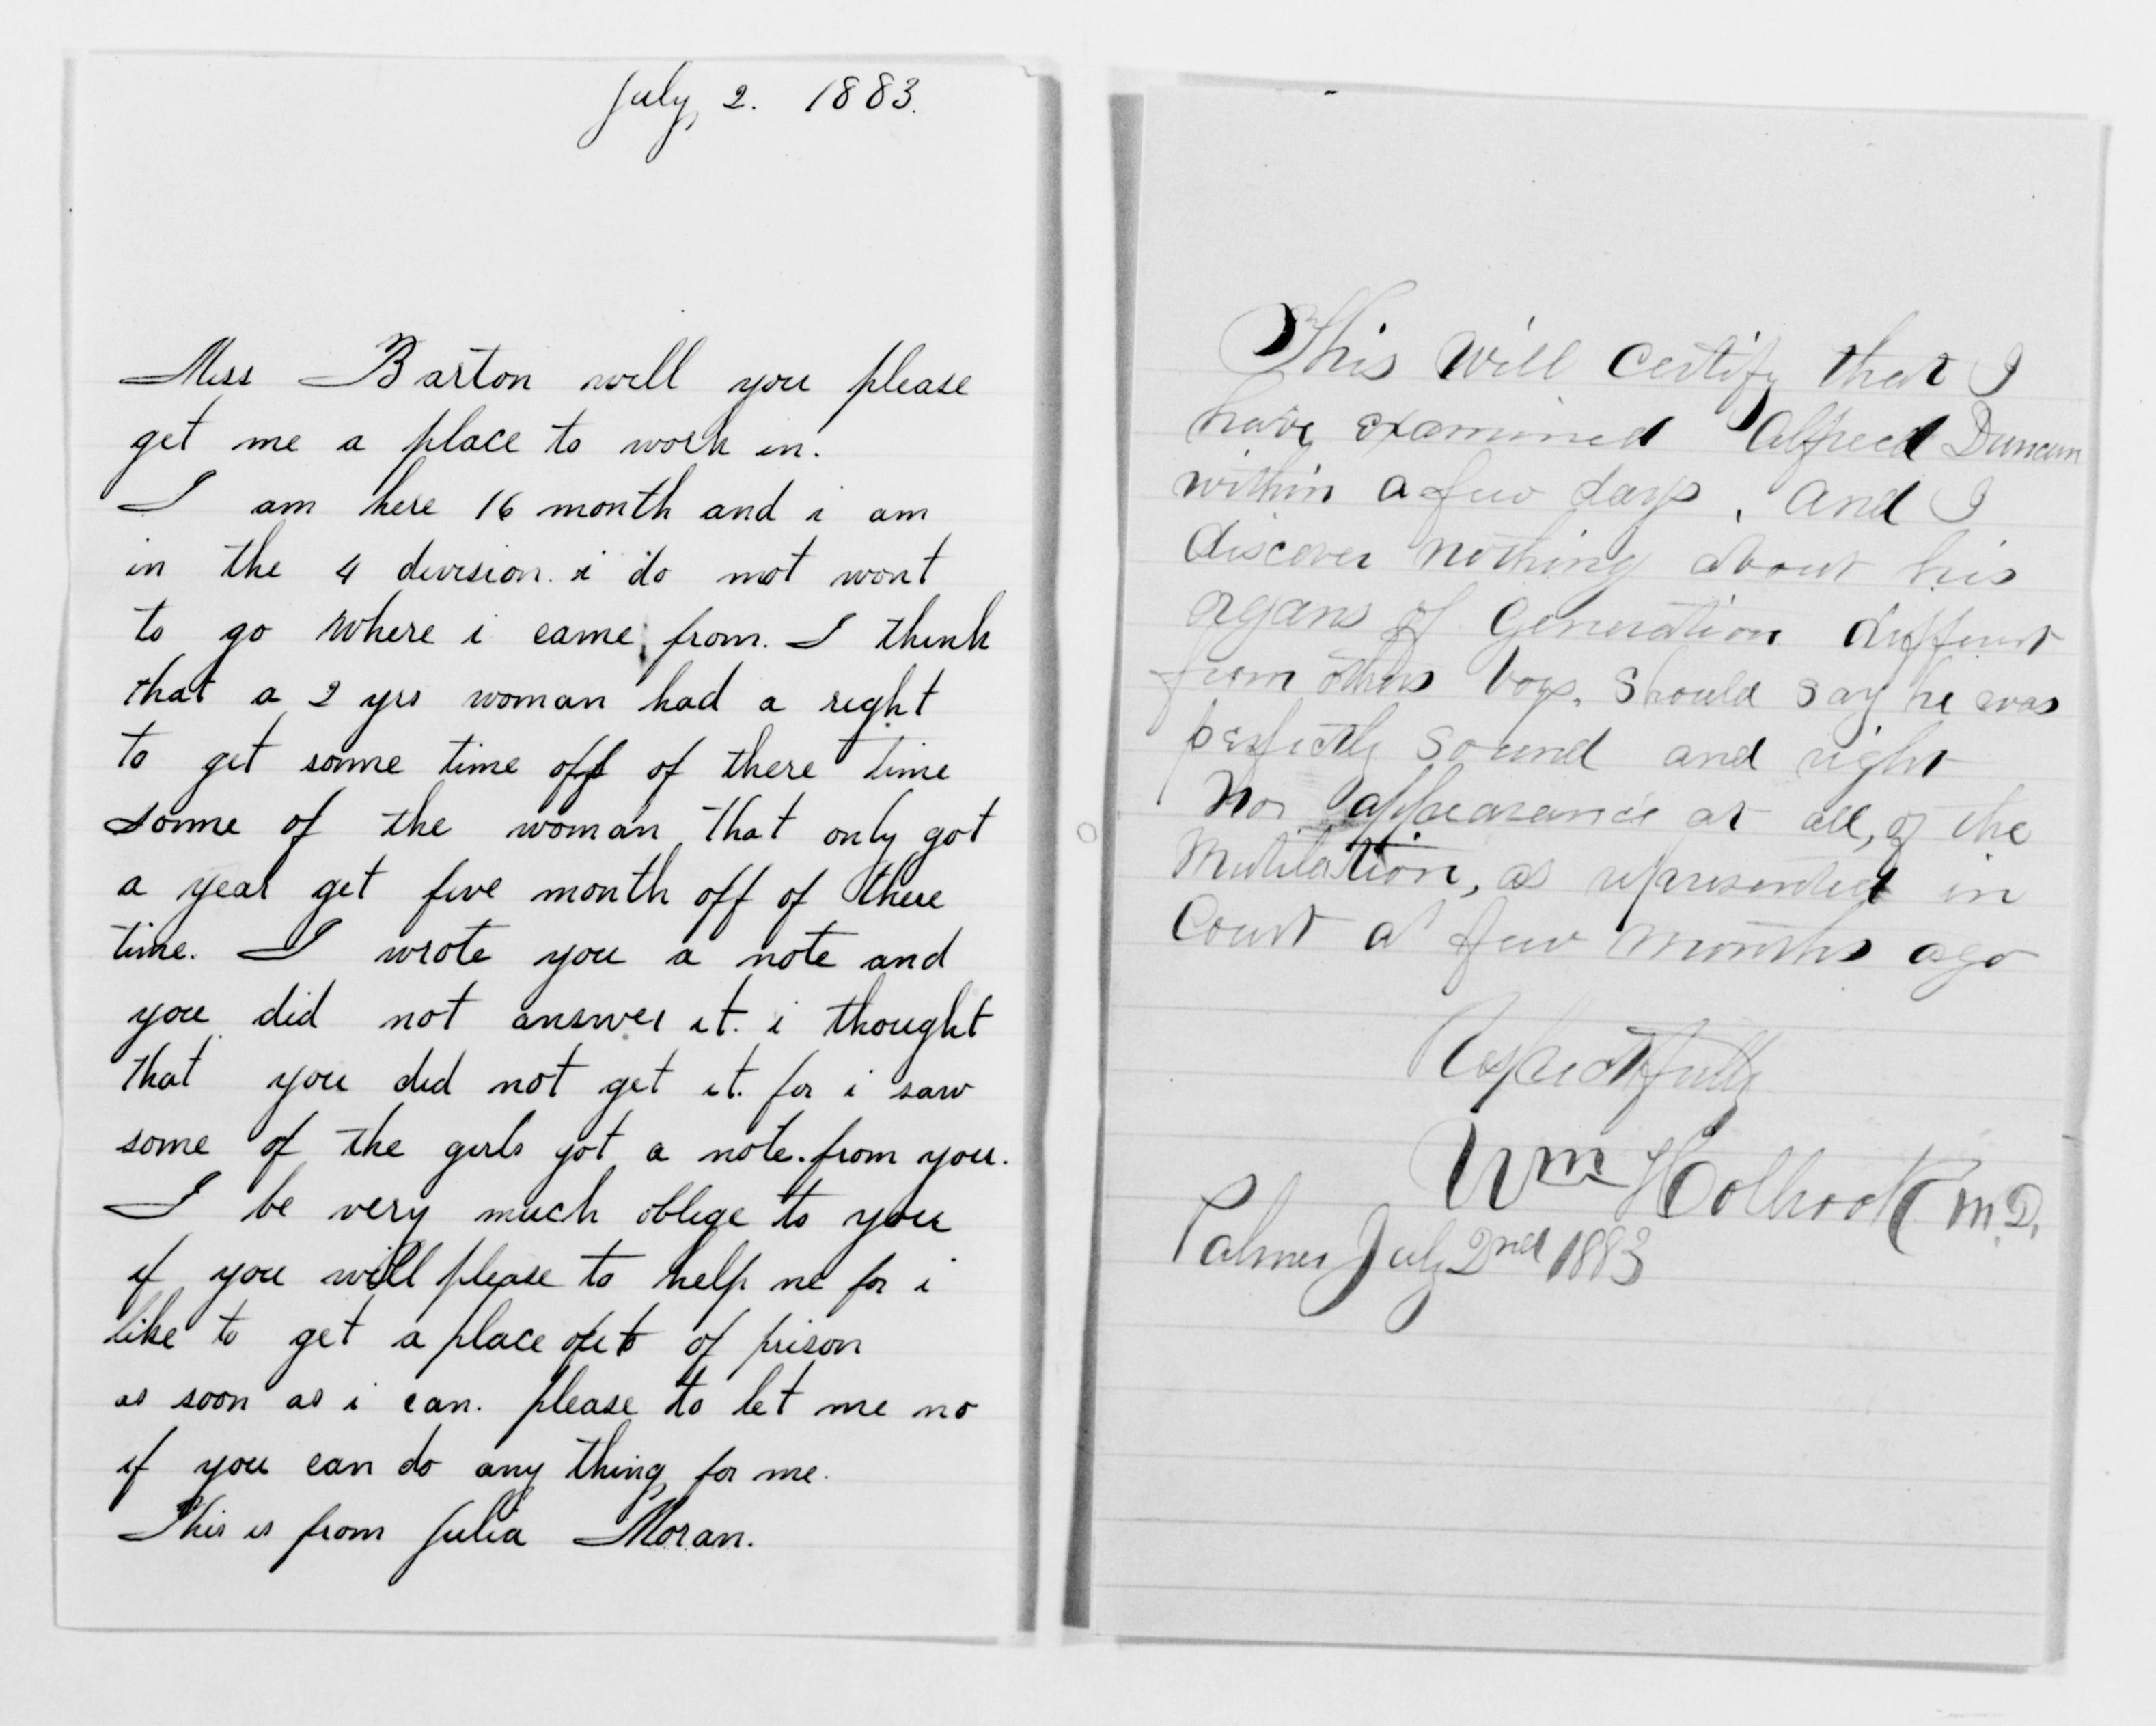 July, 2. 1883.
Miss Barton will you please
get me a place to work in.
I am here 16 month and i am
in the 4 division. i do not wont
to go where i came from. I think
that a 2 yrs woman had a right
to get some time off of there time
some of the woman that only got
a year get five month off of there
time. I wrote you a note and
you did not answer it. i thought
that you did not get it. for i saw
some of the girls got a note. from you.
I be very much oblige to you
if you will please to help me for i
like to get a place out of prison
as soon as i can. please to let me no
if you can do any thing for me.
This is from Julia Moran.
This will certify that I
have examined Alfred Duncan
within a few days, and I
discover nothing about his
organs of Generation different
from others boys. Should say he was
perfectly sound and right
Nor appearance at all, of the
Mutilation, as represented in
Court a few months ago
Respectfully
Wm Holbrook M.D.
Palmer July 2nd 1883